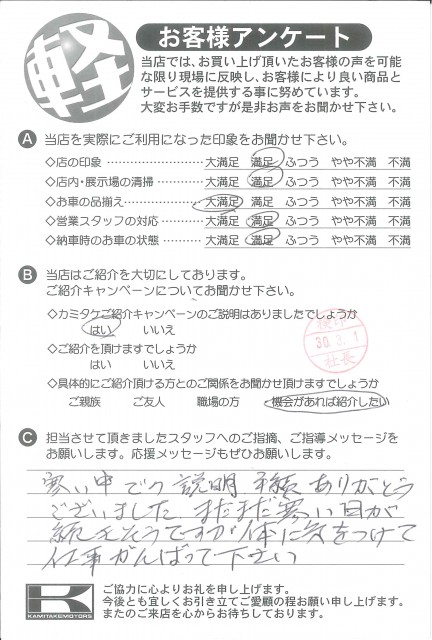 軽
お客様アンケート
当店では、お買い上げ頂いたお客様の声を可能
な限り現場に反映し、お客様により良い商品と
サービスを提供する事に努めています。
大変お手数ですが是非お声をお聞かせ下さい。
A 当店を実際にご利用になった印象をお聞かせ下さい。
◇店の印象 大満足 満足 ふつう やや不満 不満
◇店内・展示場の清掃 大満足 満足 ふつう やや不満 不満
◇お車の品揃え 大満足 満足 ふつう やや不満 不満
◇営業スタッフの対応 大満足 満足 ふつう やや不満 不満
◇納車時のお車の状態 大満足 満足 ふつう やや不満 不満
B 当店はご紹介を大切にしております。
ご紹介キャンペーンについてお聞かせ下さい。
◇カミタケご紹介キャンペーンのご説明はありましたでしょうか
はい いいえ
◇ご紹介を頂けますでしょうか
はい いいえ
30.3.1
社長
◇具体的にご紹介頂ける方とのご関係をお聞かせ頂けますでしょうか
ご親族 ご友人 職場の方 機会があれば紹介したい
C 担当させて頂きましたスタッフへのご指摘、ご指導メッセージを
お願いします。応援メッセージもぜひお願いします。
寒い中での説明 手続 ありがとう
ございました まだまだ寒い日が
続きそうですが体に気をつけて
仕事がんばって下さい
K
KAMITAKEMOTORS
ご協力に心よりお礼を申し上げます。
今後とも宜しくお引き立てご愛顧の程お願い申し上げます。
またのご来店を心からお待ちしております。